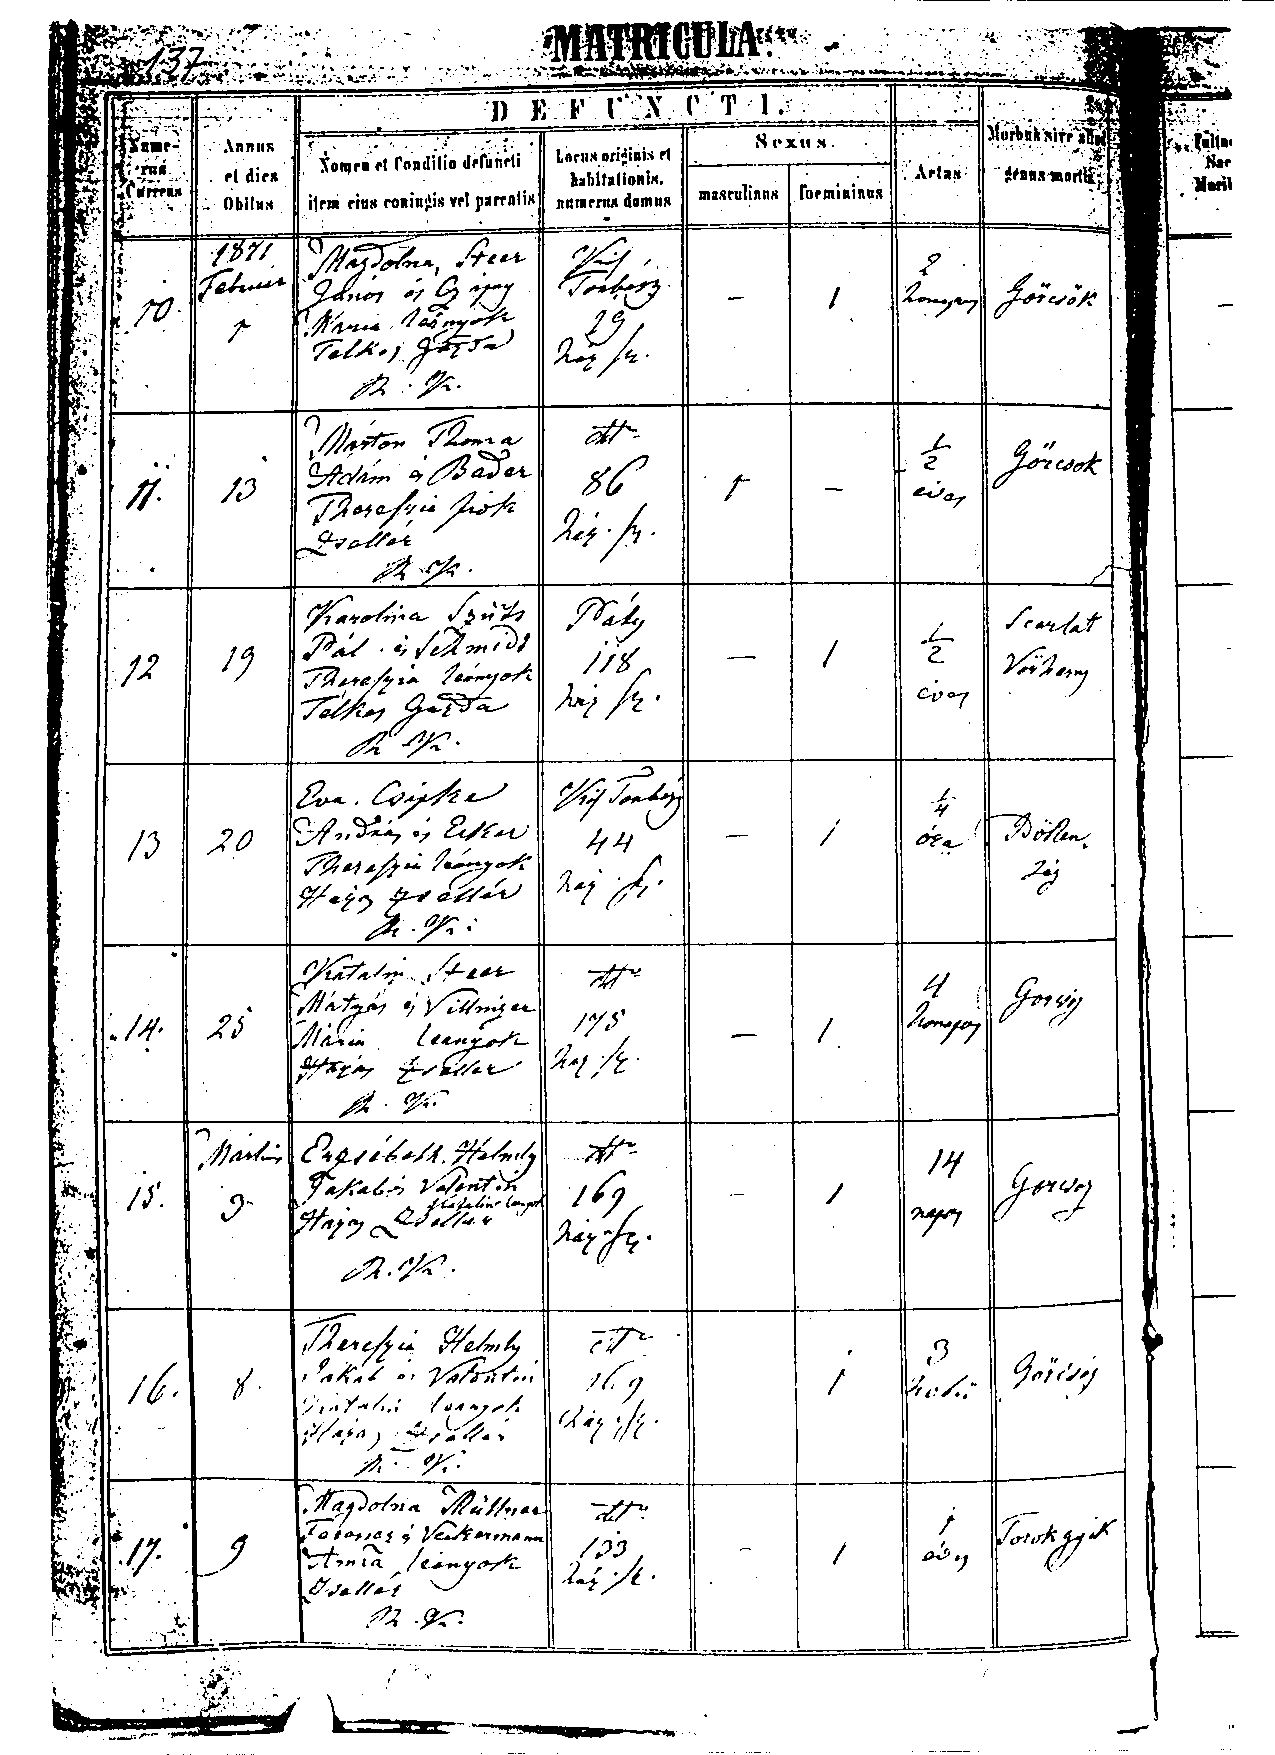 137
MATRICULA
DEFUNCTI.
Nume-
rus
Currens
Annus
et dies
Obitus
Nomen et Conditio defuncti
item eius coniugis vel parentis
Locus originis et
habitationis,
numerus domus
Sexus.
masculinus
foemininus
Aetas
Morbus sive aliud
genus mortis
10
1871
Februar
1
Magdolna, Steer
János és
Maria leányok
Telkes Gazda
R. K.
Kis
Torbágy
29
ház sz.
—
1
2
honapos
Görcsök
11.
13
Márton Thoma
Adám és Bader
Thereszia fiok
Zsellér
R. K.
dtto
86
ház. sz.
1
—
1/2
éves
Görcsok
12
19
Karolina Szüts
Pál és Schmidt
Thereszia leányok
Telkes Gazda
R. K.
Páty
118
ház sz.
—
1
1/2
éves
Scarlat
Vörheny
13
20
Eva. Csipke
András és Ecker
Thereszia leányok
Házas Zsellér
R. K.
Kis Torbágy
44
ház. sz.
—
1
1/4
óra
14.
25
Katalin Steer
Mátyás és Villinger
Mária leányok
Házas Zseller
R. K.
dtto
175
ház. sz.
—
1
4
honapos
15.
Martius
3
Erzsébeth. Helmly
Jakab és Valentin
Katalin leanyok
Házas Zseller
R. K.
dtto
169
ház. sz.
—
1
14
napos
16.
8.
Thereszia Helmly
Jakab és Valentin
Katalin leanyok
Házas Zsellér
R. K.
dtto
169
ház. sz.
1
3
17.
9
Magdolna Müllner
Ferencz és Veckermann
Anna leányok
Zsellér
R. K.
dtto
133
ház. sz.
—
1
1
éves
Torokgyik